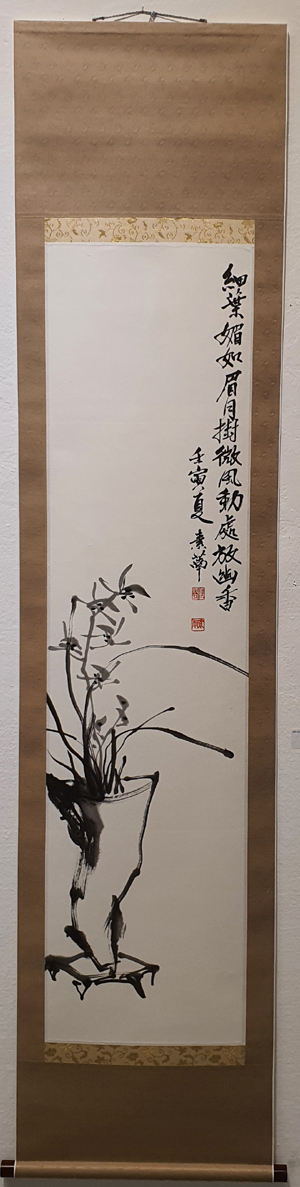 細葉媚如眉月樹微風動處放幽香
壬寅夏 素華